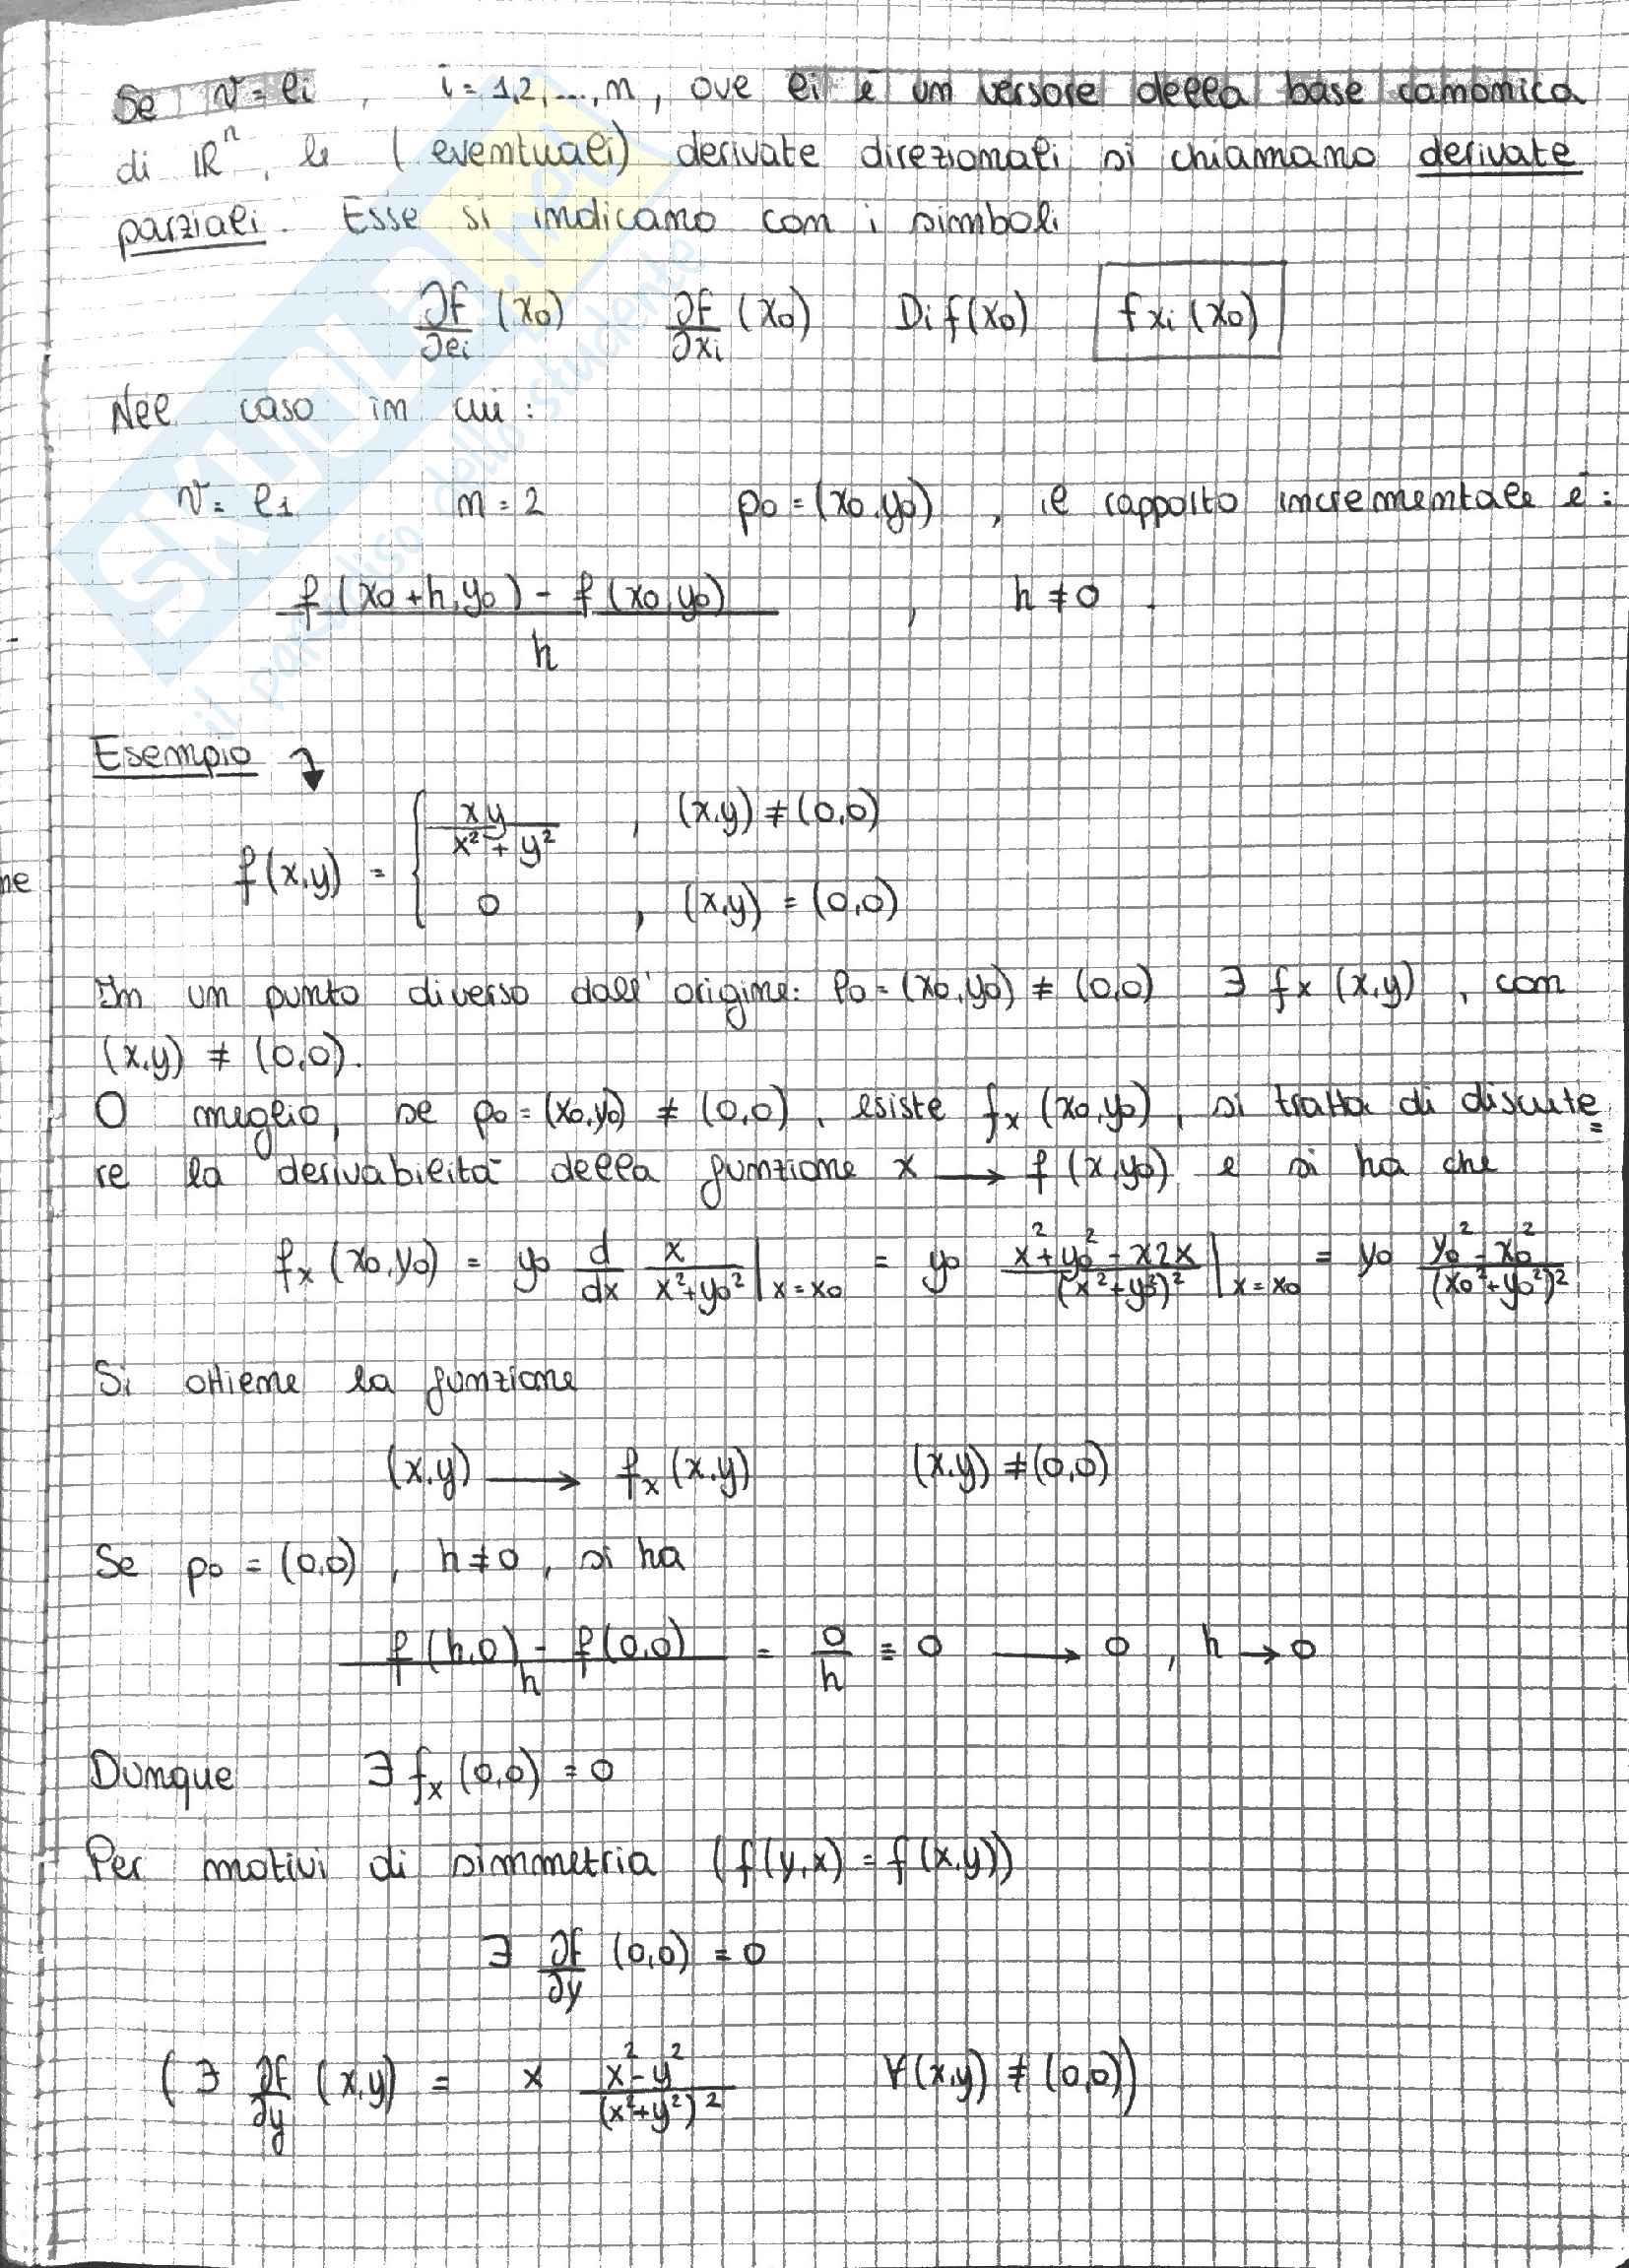 Se v = ei , i = 1,2,...,n, ove ei è un versore della base canonica
di ℝⁿ, le (eventuali) derivate direzionali si chiamano derivate
parziali. Esse si indicano con i simboli
∂f/∂ei (x0) ∂f/∂xi (x0) Di f(x0) fxi (x0)
Nel caso in cui:
v = e1 n = 2 p0 = (x0,y0) , il rapporto incrementale è:
f(x0+h,y0) - f(x0,y0) / h , h ≠ 0 .
Esempio
f(x,y) = { xy / x²+y² , (x,y) ≠ (0,0)
0 , (x,y) = (0,0)
ne
In un punto diverso dall'origine: P0 = (x0,y0) ≠ (0,0) ∃ fx (x,y) , con
(x,y) ≠ (0,0).
O meglio, se p0 = (x0,y0) ≠ (0,0) , esiste fx (x0,y0) , si tratta di discute=
re la derivabilità della funzione x → f(x,y0) e si ha che
fx (x0,y0) = y0 d/dx x / x²+y0² |x=x0 = y0 x²+y0²-x2x / (x²+y0²)² |x=x0 = y0 y0²-x0² / (x0²+y0²)²
Si ottiene la funzione
(x,y) → fx (x,y) (x,y) ≠ (0,0)
Se p0 = (0,0) , h ≠ 0 , si ha
f(h,0) - f(0,0) / h = 0/h = 0 → 0 , h → 0
Dunque ∃ fx (0,0) = 0
Per motivi di simmetria (f(y,x) = f(x,y))
∃ ∂f/∂y (0,0) = 0
(∃ ∂f/∂y (x,y) = x x²-y² / (x²+y²)² ∀(x,y) ≠ (0,0))
SKUOLA.net
il paradiso dello studente